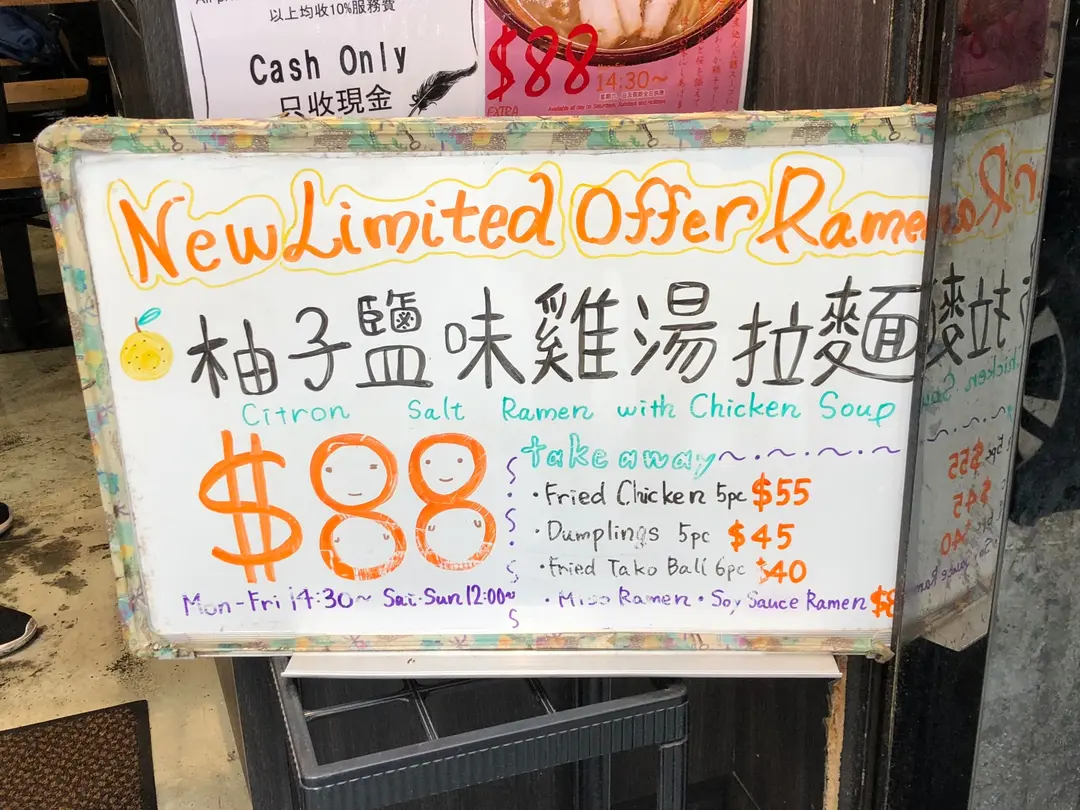 以上均收10%服務費
Cash Only
只收現金
$88
14:30~
EXTRA
Available all day on Saturdays, Sundays and Holidays
New Limited Offer Rame
柚子鹽味雞湯拉麵
Citron Salt Ramen with Chicken Soup
$88
take away
·Fried Chicken 5pc $55
·Dumplings 5pc $45
·Fried Tako Ball 6pc $40
·Miso Ramen ·Soy Sauce Ramen $8
Mon-Fri 14:30~ Sat·Sun 12:00~